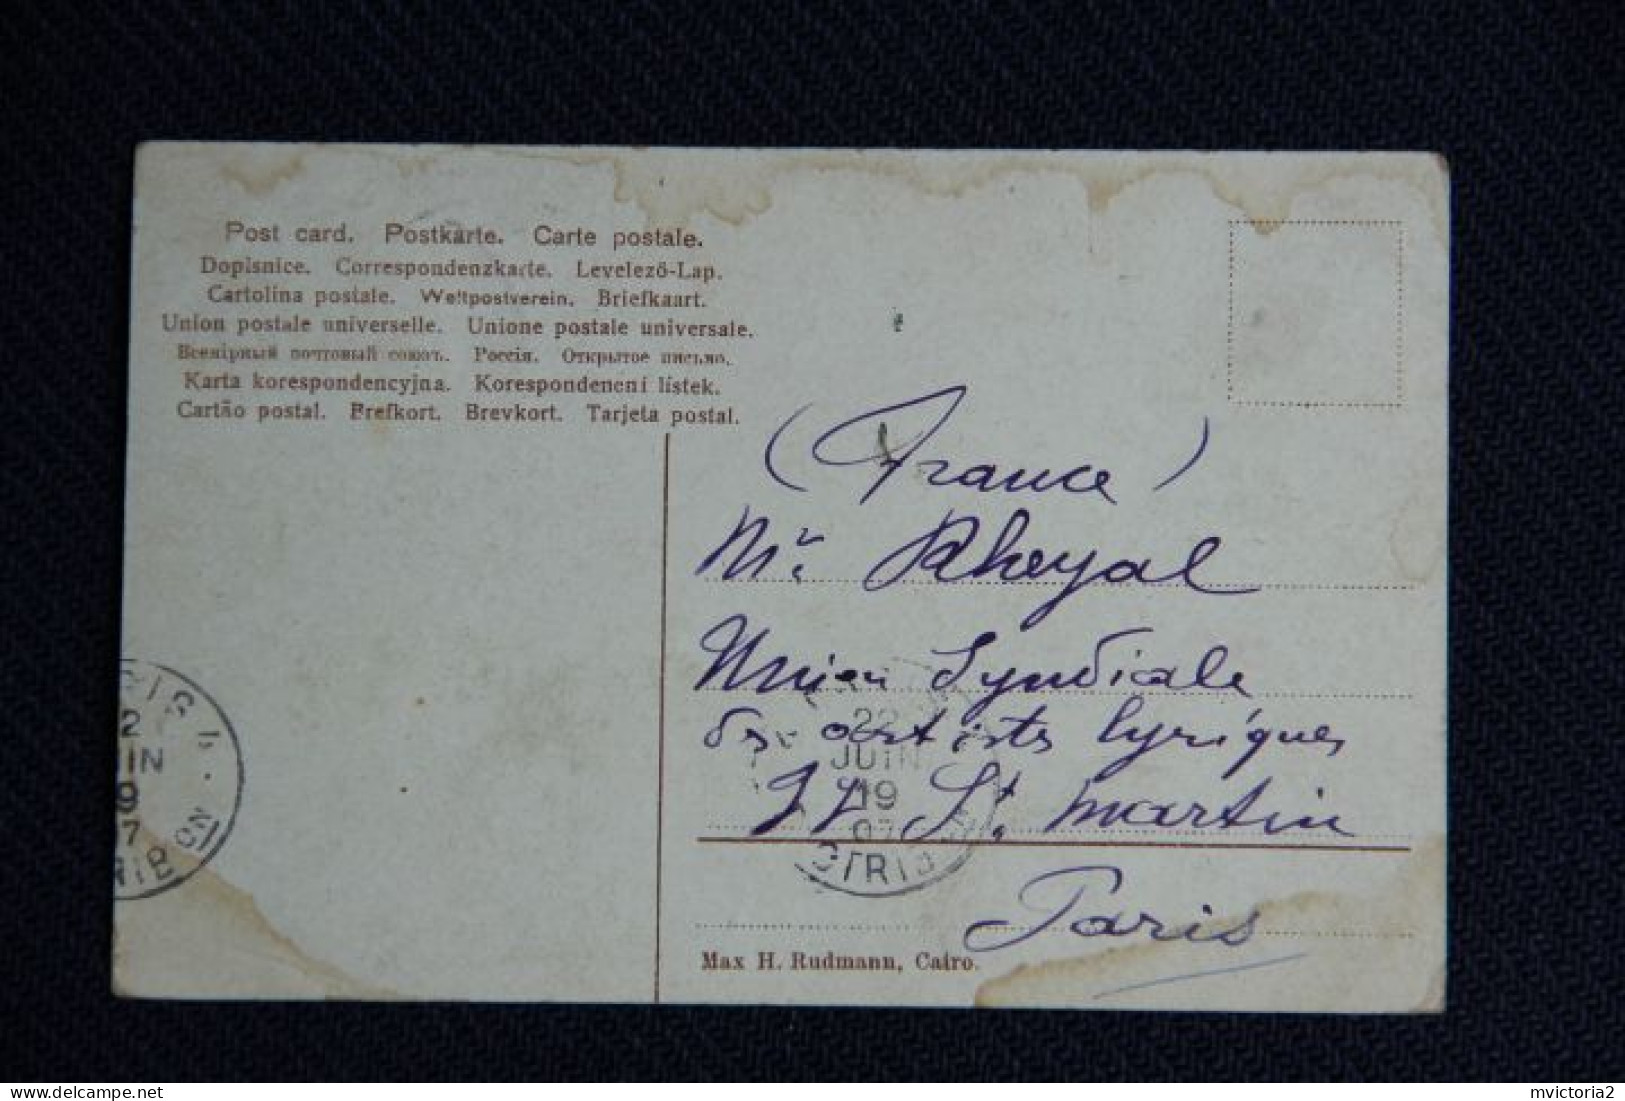 Post card. Postkarte. Carte postale.
Dopisnice. Correspondenzkarte. Levelező-Lap.
Cartolina postale. Weltpostverein. Briefkaart.
Union postale universelle. Unione postale universale.
Всемірный почтовый союзъ. Россія. Открытое письмо.
Karta korespondencyjna. Korespondenční lístek.
Cartão postal. Brefkort. Brevkort. Tarjeta postal.
(France)
Mr. Rheyal
Union Syndiale
des artistes lyriques
St. Martin
Paris
22
JUIN
19
07
DISTRIB
2
IN
9
7
RIBON
Max H. Rudmann, Cairo.
mvictoria2